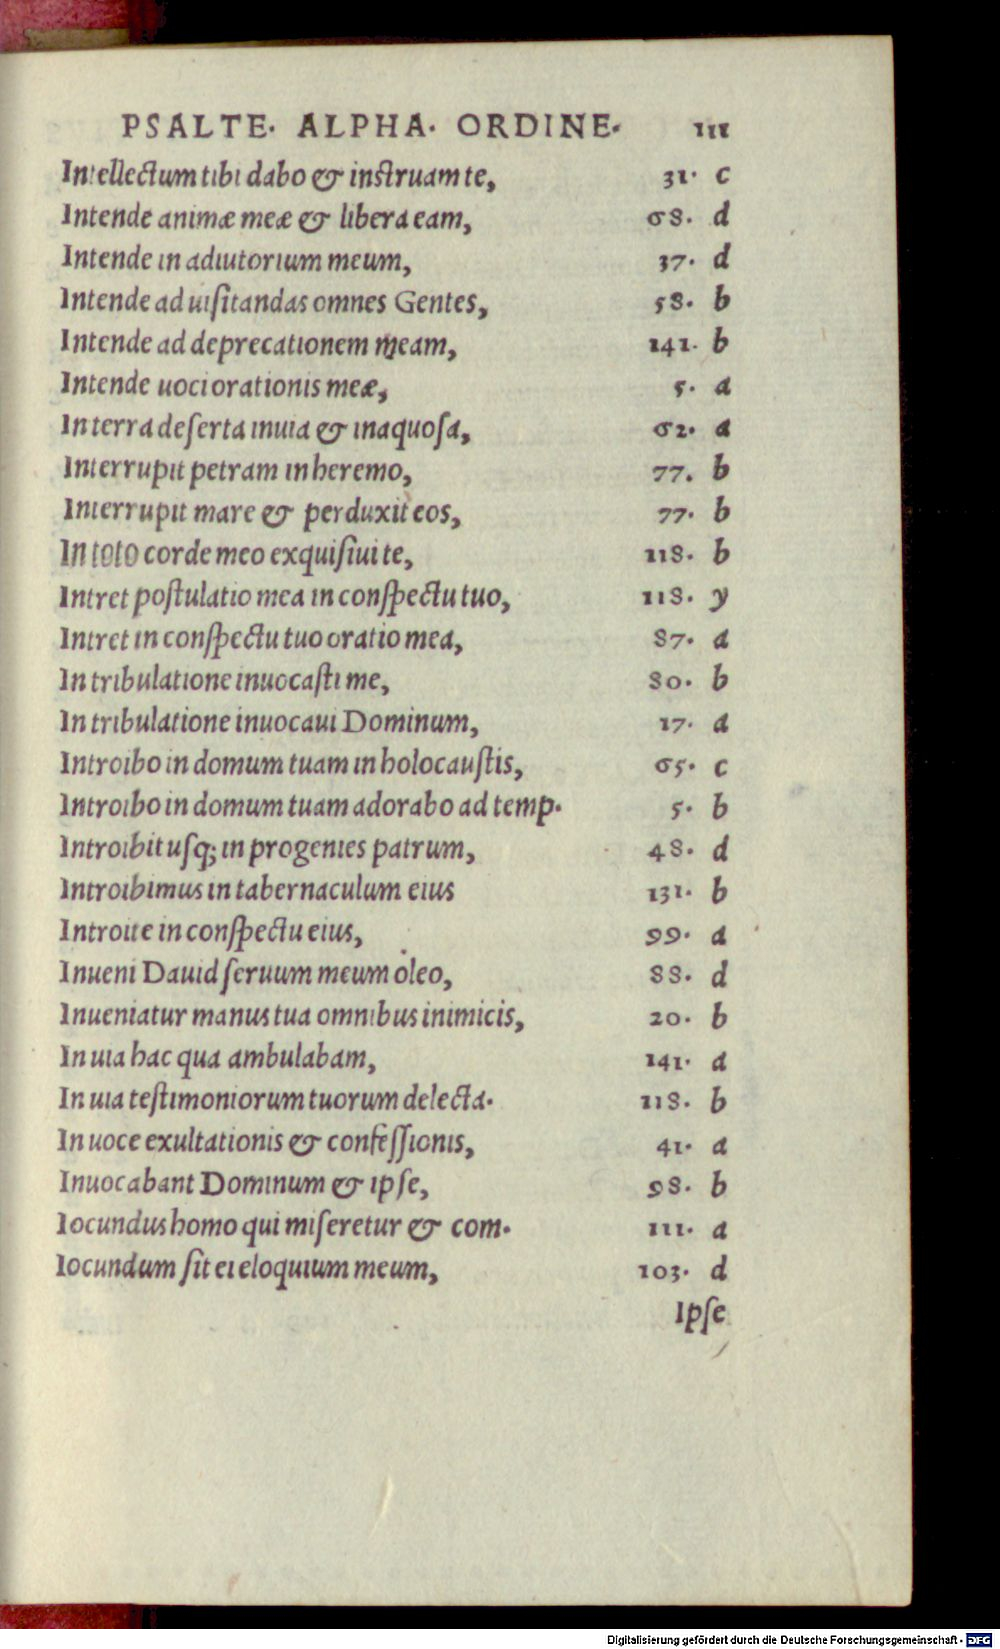 PSALTE. ALPHA. ORDINE. 111
Intellectum tibi dabo & instruam te, 31. c
Intende animæ meæ & libera eam, 68. d
Intende in adiutorium meum, 37. d
Intende ad uiſitandas omnes Gentes, 58. b
Intende ad deprecationem meam, 141. b
Intende uoci orationis meæ, 5. a
In terra deſerta inuia & inaquoſa, 62. a
Interrupit petram in heremo, 77. b
Interrupit mare & perduxit eos, 77. b
In toto corde meo exquiſiui te, 118. b
Intret poſtulatio mea in conſpectu tuo, 118. y
Intret in conſpectu tuo oratio mea, 87. a
In tribulatione inuocaſti me, 80. b
In tribulatione inuocaui Dominum, 17. a
Introibo in domum tuam in holocauſtis, 65. c
Introibo in domum tuam adorabo ad temp. 5. b
Introibit uſq; in progenies patrum, 48. d
Introibimus in tabernaculum eius 131. b
Introite in conſpectu eius, 99. a
Inueni Dauid ſeruum meum oleo, 88. d
Inueniatur manus tua omnibus inimicis, 20. b
In uia hac qua ambulabam, 141. a
In uia teſtimoniorum tuorum delecta. 118. b
In uoce exultationis & confeſſionis, 41. a
Inuocabant Dominum & ipſe, 98. b
Iocundus homo qui miſeretur & com. 111. a
Iocundum ſit ei eloquium meum, 103. d
Ipſe
Digitalisierung gefördert durch die Deutsche Forschungsgemeinschaft - DFG